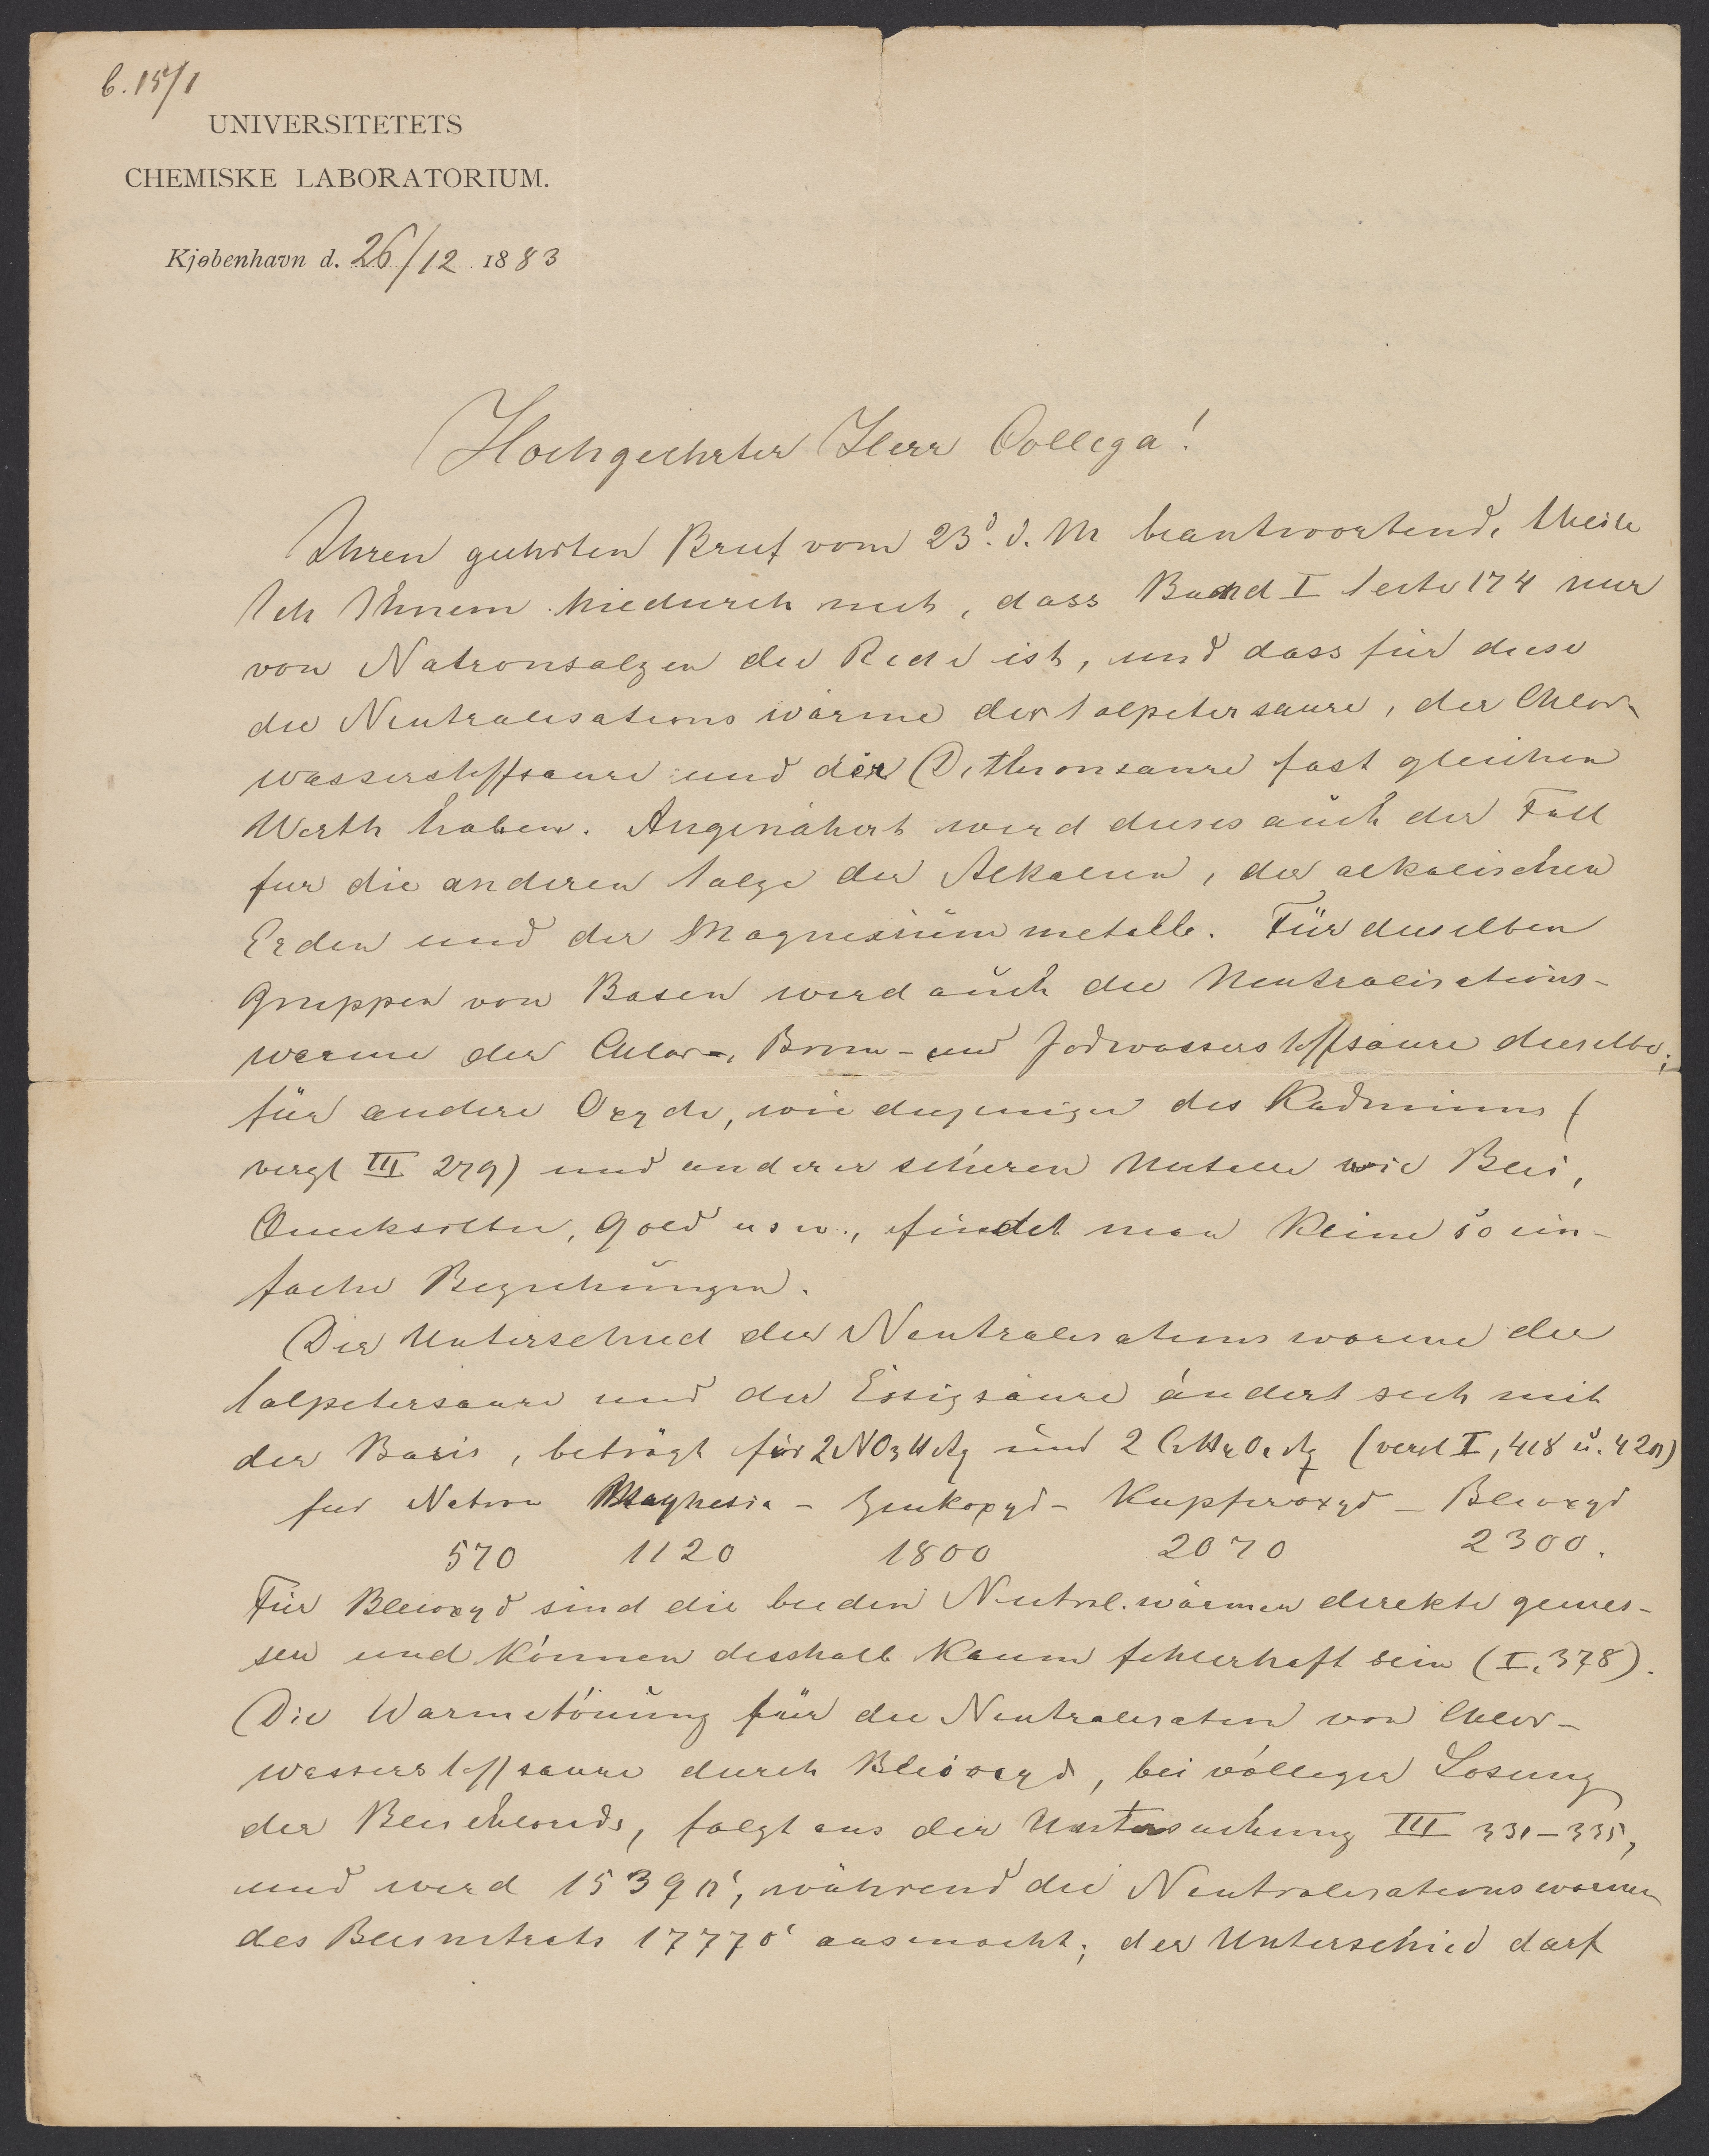 b. 15/1
UNIVERSITETETS
CHEMISKE LABORATORIUM.
Kjøbenhavn d. 26/12 1883
Hochgeehrter Herr Collega!
Ihren geehrten Brief vom 23d. d. M beantwortend, theile
Ich Ihnem hiedurch mit, dass Band I Seite 174 nur
von Natronsalzen die Rede ist, und dass für diese
die Neutralisationswärme der Salpetersaure, der Chlor-
wasserstoffsaure und der Dithionsaure fast gleichen
Werth haben. Angenähert wird dieses auch der Fall
fur die anderen Salze der Alkalien, der alkalischen
Erden und der Magnesiummetalle. Für dieselben
Gruppen von Basen wird auch die Neutralisations-
warme der Chlor-, Brom- und Jodwasserstoffsäure dieselbe;
für andere Oxyde, wie diejenigen des Kadmiums (
vergl III 279) und anderer schweren Metalle wie Blei,
Quecksilber, Gold usw., findet man keine so ein-
fache Beziehungen.
Der Unterschied der Neutralisationswarme der
Salpetersaure und der Essigsäure ändert sich mit
der Basis, beträgt für 2NO3HAq und 2 C2H4O2Aq (vergl I, 418 u. 420)
fur Natron Maghesia - Zinkoxyd - Kupferoxyd - Bleioxyd
570 1120 1800 2070 2300.
Für Bleioxyd sind die beiden Neutral.wärmen direkte gemes-
sen und können desshalb kaum fehlerhaft sein (I, 378).
Die Warmetönung für die Neutralisation von Chlor-
wasserstoffsaure durch Bleioxyd, bei völliger Losung
der Bleichlorids, folgt aus der Untersuchung III 331-335,
und wird 15390c, während die Neutralisationswarme
des Bleinitrats 17770c ausmacht; der Unterschied darf